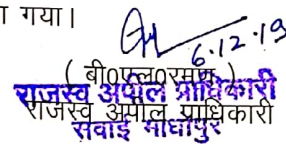 ा गया।
6.12.19
( बी०एल०रमण )
राजस्व अपील प्राधिकारी
राजस्व अपील प्राधिकारी
सवाई माधोपुर